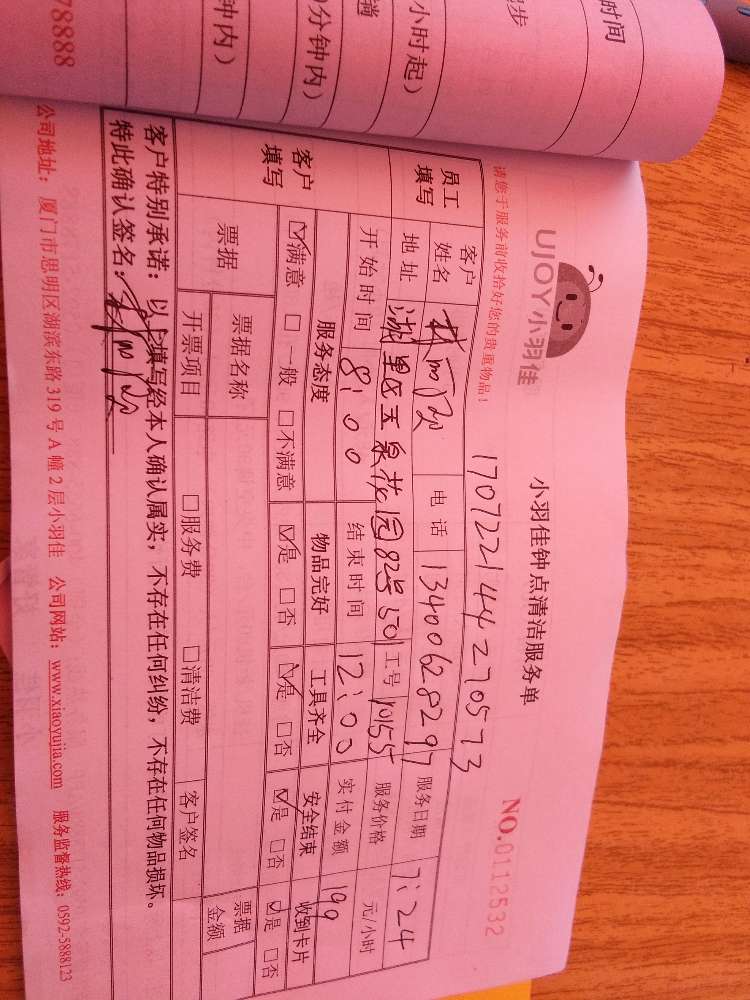 时间
小时起)
钟内)
0分钟内)
78888
UJOY小羽佳
小羽佳钟点清洁服务单
NO.0112532
请您于服务前收拾好您的贵重物品!
17072214427 0573
员工填写
客户姓名 林丽 电话 13400628297 服务日期 7:24
地址 湖里区玉泉花园82号501 工号 10155 服务价格 元/小时
开始时间 8:00 结束时间 12:00 实付金额 199
客户填写
服务态度 物品完好 工具齐全 安全结束 收到卡片
☑满意 □一般 □不满意 ☑是 □否 ☑是 □否 ☑是 □否 ☑是 □否
票据 票据名称 票据金额
开票项目 □服务费 □清洁费 客户签名
客户特别承诺:以上填写经本人确认属实,不存在任何纠纷,不存在任何物品损坏。
特此确认签名:
公司地址:厦门市思明区湖滨东路319号A幢2层小羽佳 公司网站:www.xiaoyujia.com 服务监督热线:0592-5888123